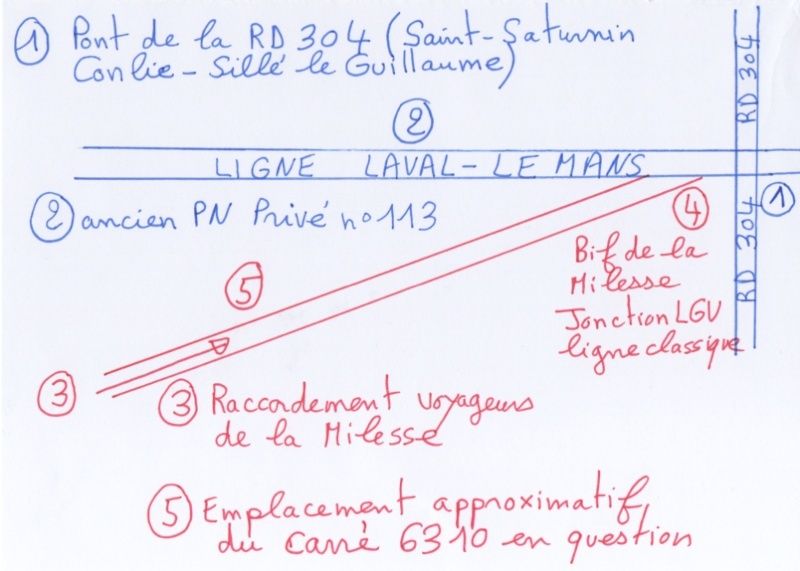 ① Pont de la RD 304 (Saint-Saturnin
Conlie - Sillé le Guillaume)
RD 304
②
LIGNE LAVAL - LE MANS
② ancien PN Privé n°113
④
①
RD 304
Bif de la
Milesse
Jonction LGV
ligne classique
⑤
③
③ Raccordement voyageurs
de la Milesse
⑤ Emplacement approximatif,
du carré 6310 en question